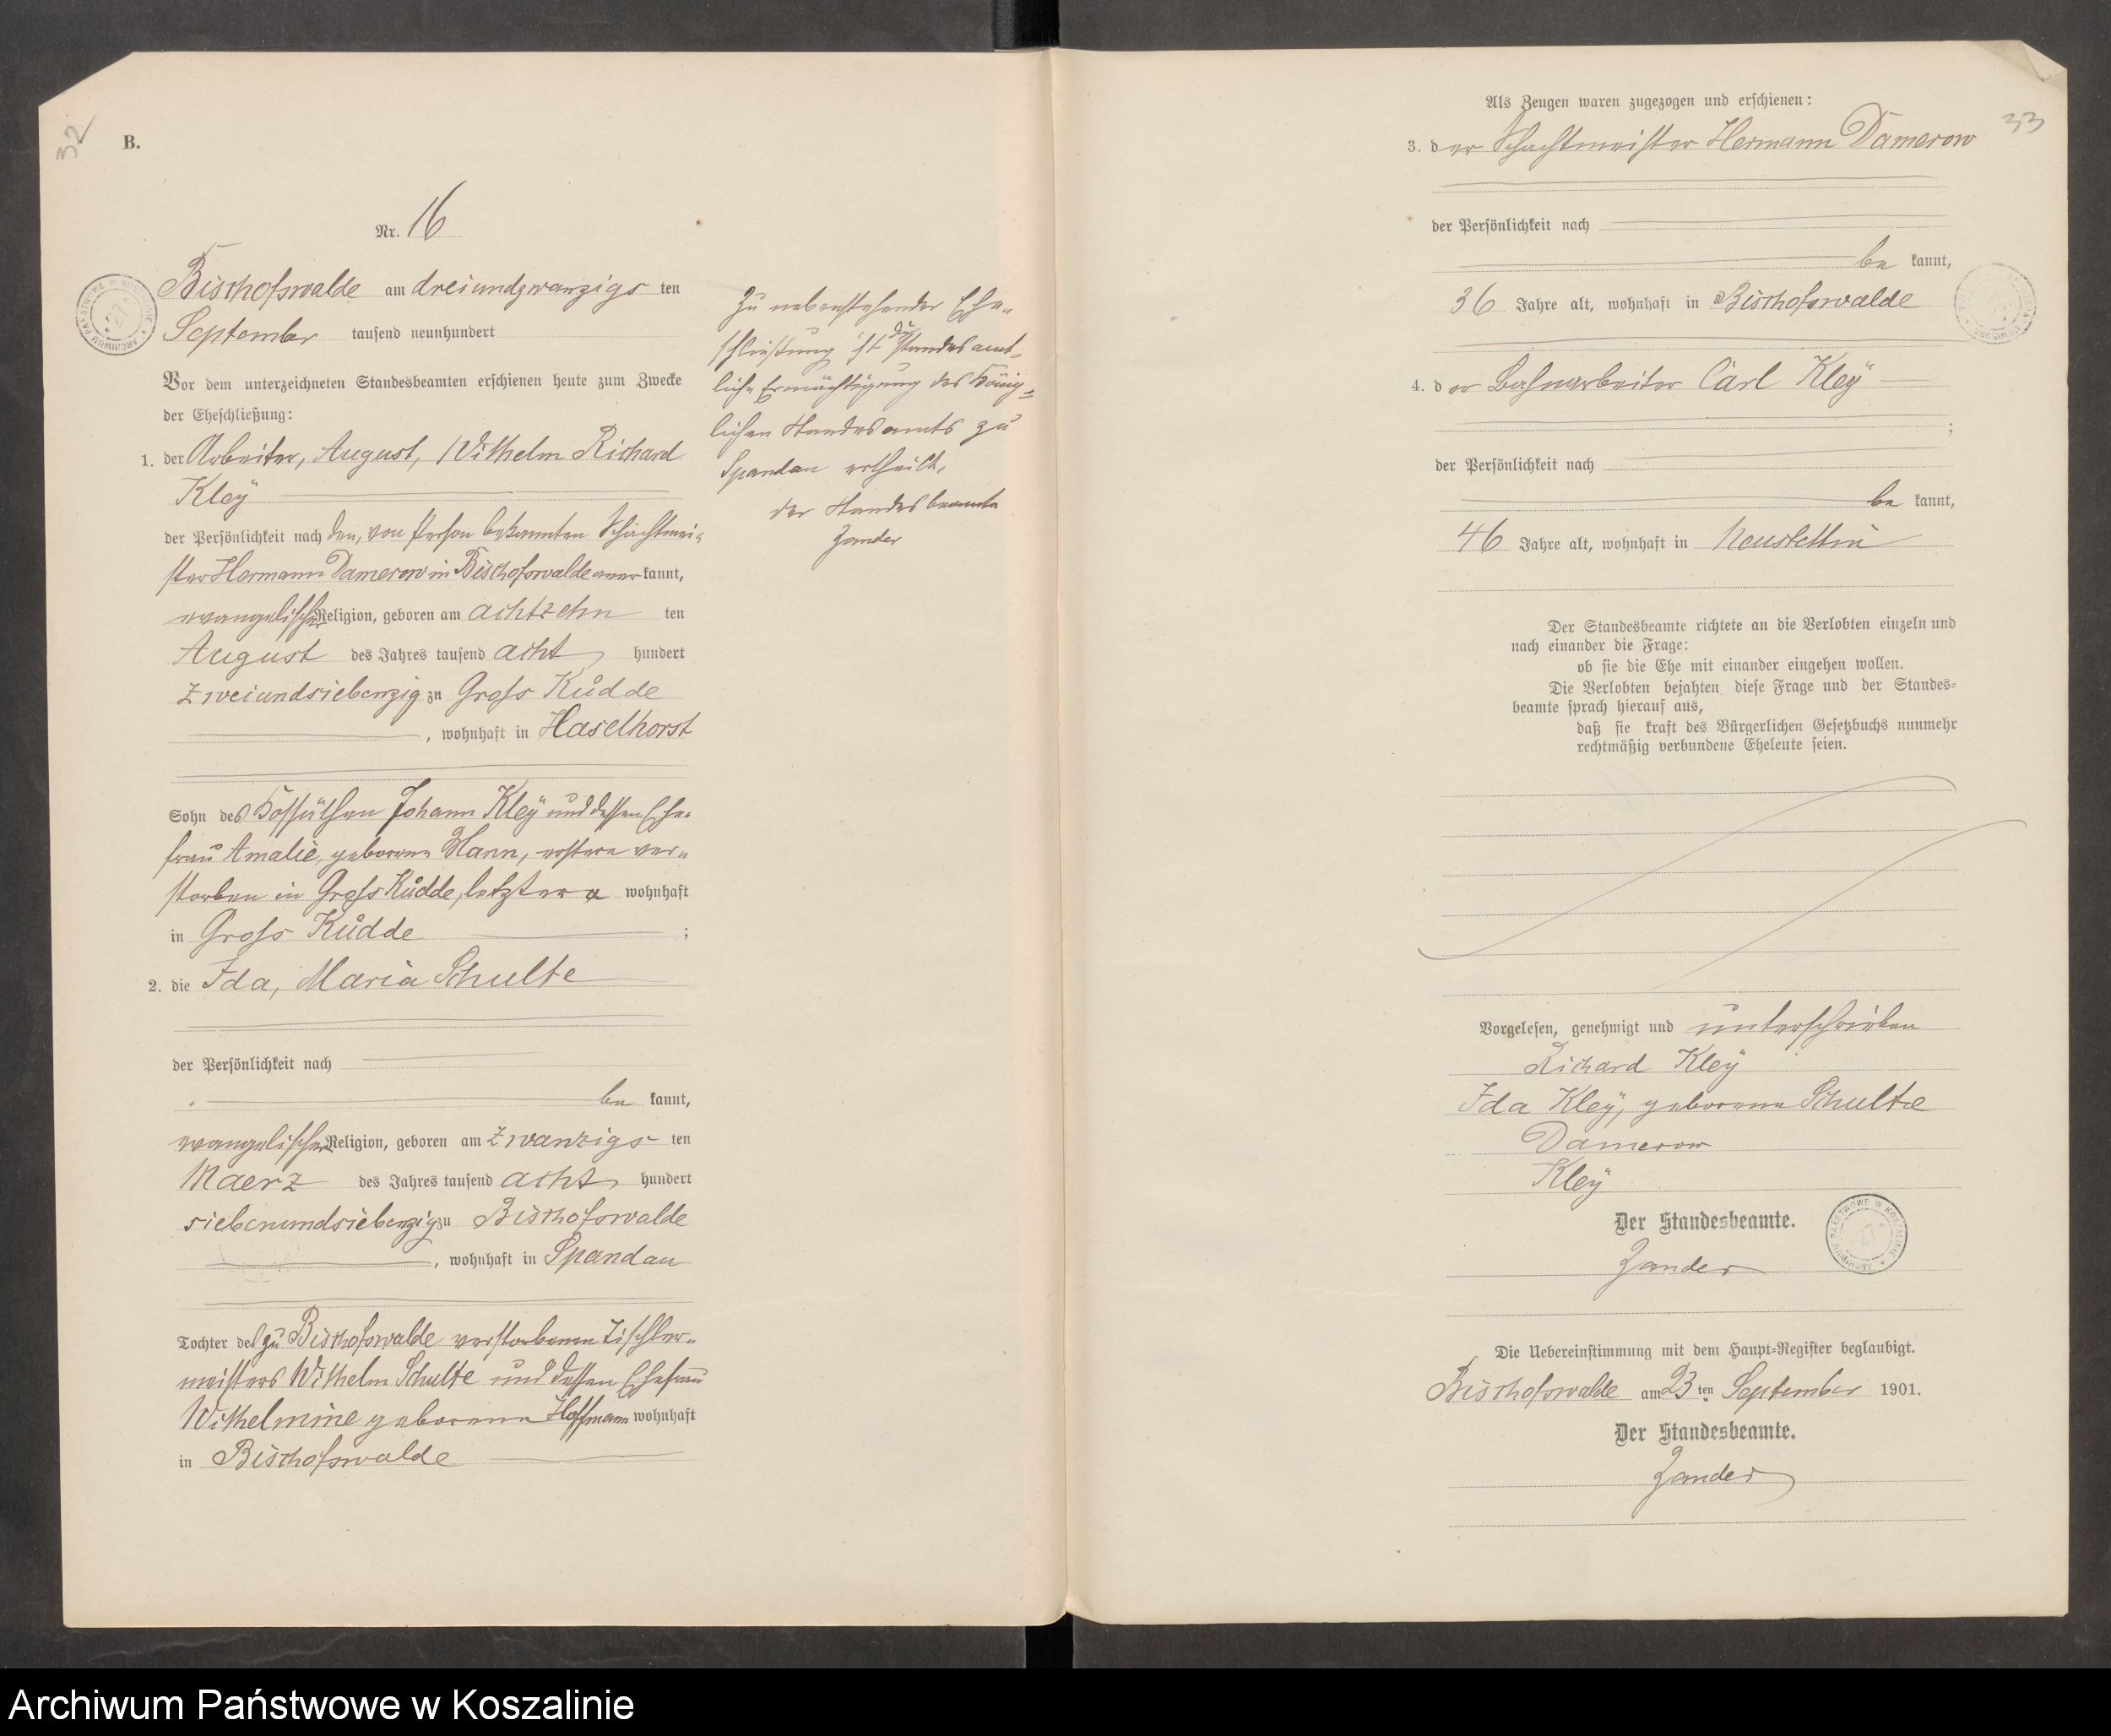 32
B.
Nr. 16
Bischofswalde am dreiundzwanzigs ten
September tausend neunhundert
Vor dem unterzeichneten Standesbeamten erschienen heute zum Zwecke
der Eheschließung:
1. der Arbeiter, August, Wilhelm Richard
Kleÿ
der Persönlichkeit nach den, von Person bekannten Schachtmei=
ster Hermann Damerow in Bischofswalde aner kannt,
evangelischer Religion, geboren am achtzehn ten
August des Jahres tausend acht hundert
zweiundsiebenzig zu Gross Küdde
, wohnhaft in Haselhorst
Sohn des Kossäthen Johann Kleÿ und dessen Ehe=
frau Amalie, geborene Mann, erstere ver=
storben in Gross Küdde, letztere wohnhaft
in Gross Küdde ;
2. die Ida, Maria Schulte
der Persönlichkeit nach
be kannt,
evangelischer Religion, geboren am zwanzigs ten
Maerz des Jahres tausend acht hundert
siebenundsiebenzig zu Bischofswalde
, wohnhaft in Spandau
Tochter des zu Bischofswalde verstorbenen Tischler=
meisters Wilhelm Schulte und dessen Ehefrau
Wilhelmine geborene Hoffmann wohnhaft
in Bischofswalde
Zu nebenstehender Ehe=
schließung ist die standesamt=
liche Ermächtigung des König=
lichen Standesamts zu
Spandau ertheilt.
Der Standesbeamte
Zander
33
Als Zeugen waren zugezogen und erschienen:
3. d er Schachtmeister Hermann Damerow
der Persönlichkeit nach
be kannt,
36 Jahre alt, wohnhaft in Bischofswalde
4. d er Bahnarbeiter Carl Kleÿ
;
der Persönlichkeit nach
be kannt,
46 Jahre alt, wohnhaft in Neustettin
Der Standesbeamte richtete an die Verlobten einzeln und
nach einander die Frage:
ob sie die Ehe mit einander eingehen wollen.
Die Verlobten bejahten diese Frage und der Standes=
beamte sprach hierauf aus,
daß sie kraft des Bürgerlichen Gesetzbuchs nunmehr
rechtmäßig verbundene Eheleute seien.
Vorgelesen, genehmigt und unterschrieben
Richard Kleÿ
Ida Kleÿ, geborene Schulte
Damerow
Kleÿ
Der Standesbeamte.
Zander
ARCHIWUM PAŃSTWOWE W KOSZALINIE
27
Die Uebereinstimmung mit dem Haupt=Register beglaubigt.
Bischofswalde am 23 ten September 1901.
Der Standesbeamte.
Zander
Archiwum Państwowe w Koszalinie